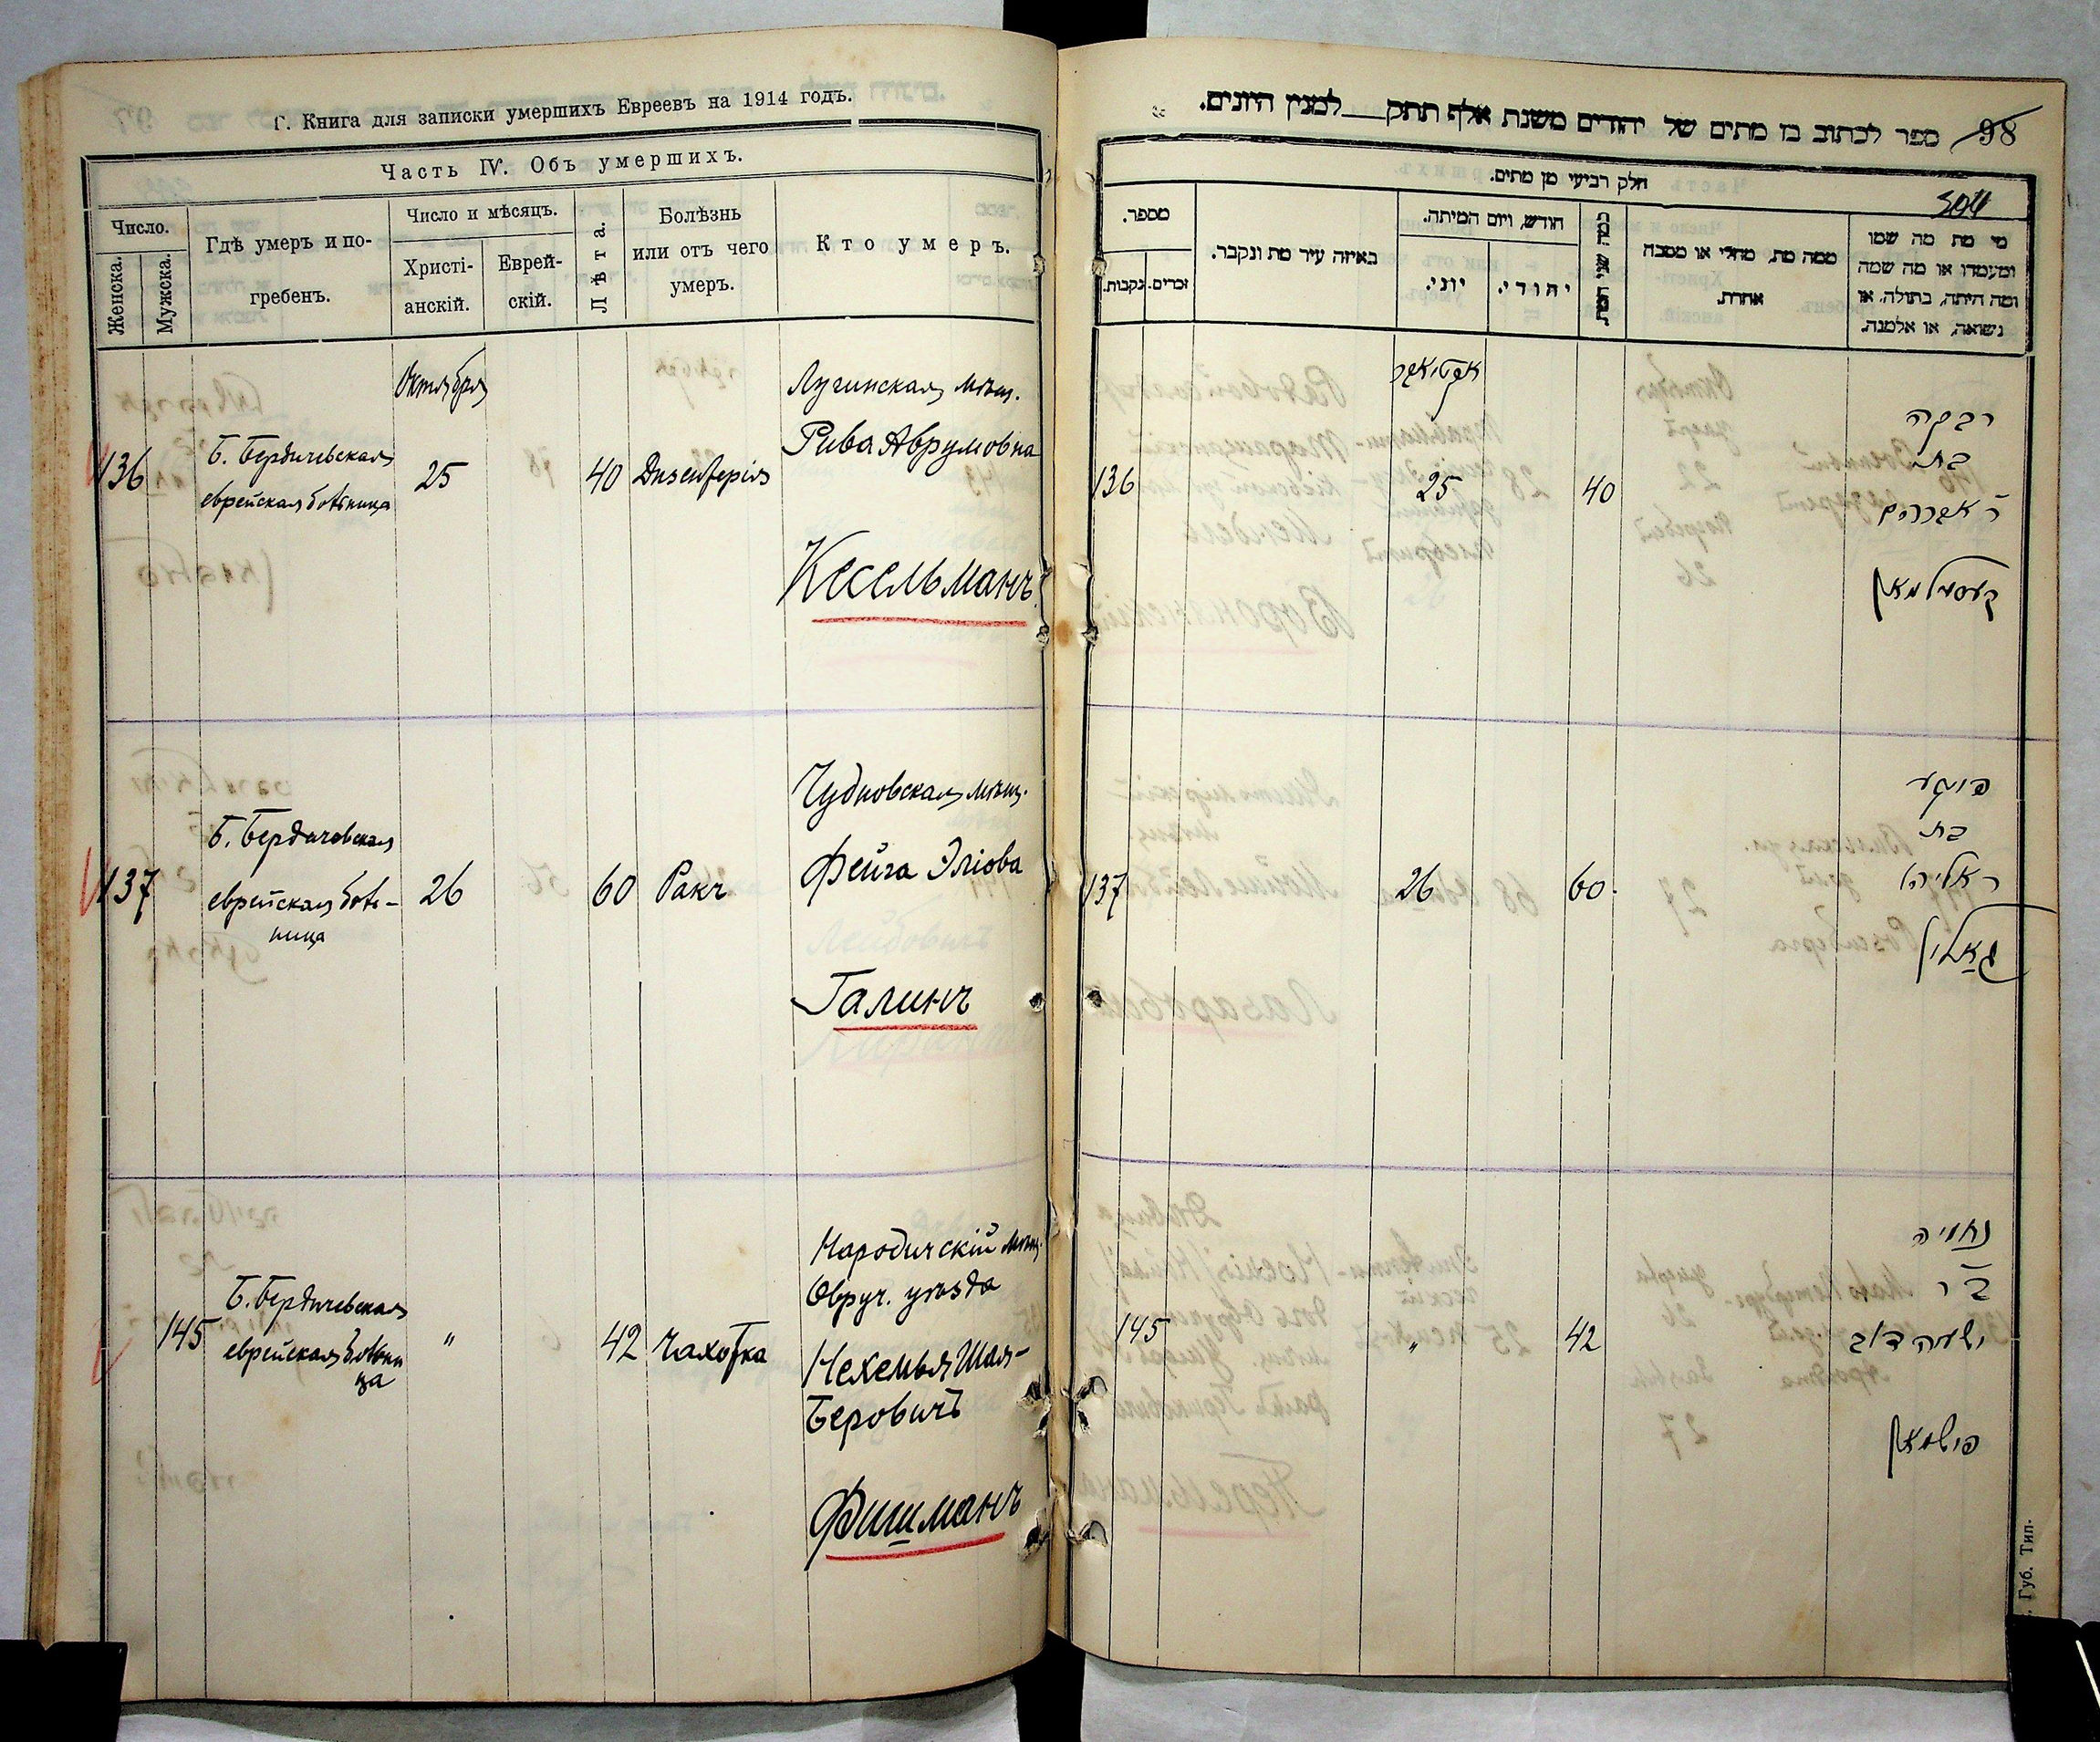 Г. Книга для записки умершихъ Евреевъ на 1914 годъ.
Часть IV. Объ умершихъ.
Число.
Женска.
Мужска.
Гдѣ умеръ и по-
гребенъ.
Число и мѣсяцъ.
Христі-
анскій.
Еврей-
скій.
Лѣта.
Болѣзнь
или отъ чего
умеръ.
Кто умеръ.
136
Б. Бердичевская
еврейская больница
Октября
25
40
Дизентерія
Лугинская мѣщ.
Рива Аврумовна
Кесельманъ
137
Б. Бердичевская
еврейская боль-
ница
26
60
Ракъ
Чудновская мѣщ.
Фейга Эліова
Галинъ
145
Б. Бердичевская
еврейская больни
ца
"
42
Чахотка
Народичскій мѣщ.
Овруч. уѣзда
Нехемья Шая-
Беровичъ
Фишманъ
ספר לכתוב בו מתים של יהודים משנת אלף תתק למנין היונים.
98
חלק רביעי מן מתים.
מספר.
נקבות.
זכרים.
באיזה עיר מת ונקבר.
חודש, ויום המיתה.
יוני.
יהודי.
כמה שני המת
ממה מת, מחלי או מסבה
אחרת.
מי מת מה שמו
ומעמדו או מה שמה
ומה היתה, בתולה, או
נשואה, או אלמנה.
136
אקטיאבר
25
40
רבקה
בת
ר אברהם
קעסעלמאן
137
26
60
פייגע
בת
ר אליהו
גאלין
145
"
42
נחמיה
ב ר
ישעיה דוב
פישמאן
Губ. Тип.